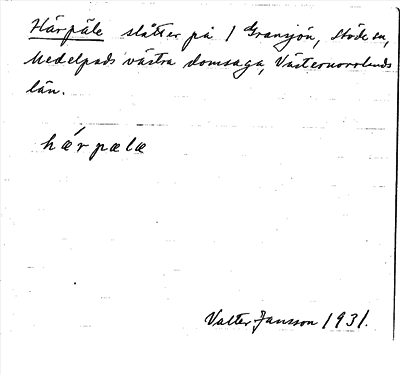 Härpäle slåtter på / Gransjön, Stöde sn,
Medelpads västra domsaga, Västernorrlands
län.
hærpælæ
Valter Jansson 1931.